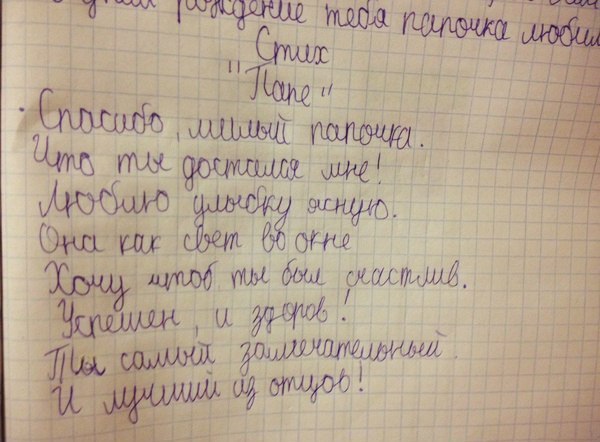 с днём рождение тебя папочка любим
Стих
"Папе"
Спасибо, милый папочка.
Что ты достался мне!
Люблю улыбку ясную.
Она как свет во окне
Хочу чтоб ты был счастлив.
Успешен, и здоров!
Ты самый замечательный.
И лучший из отцов!